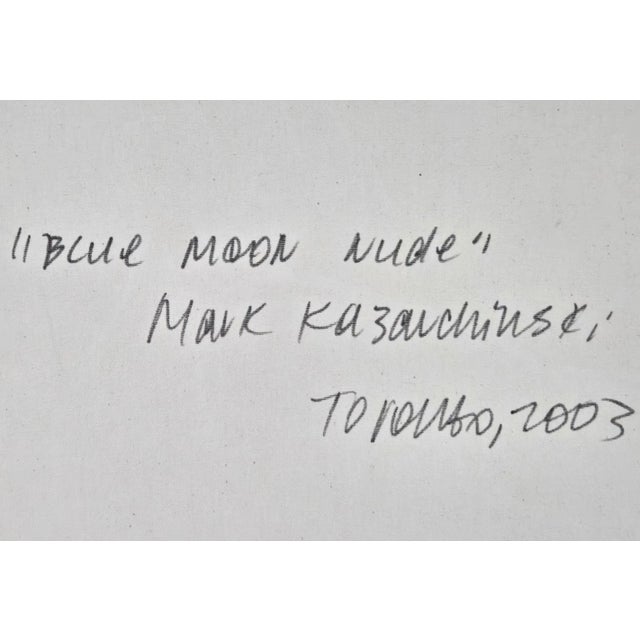 "Blue Moon Nude"
Mark Kazarchinski
Toronto, 2003